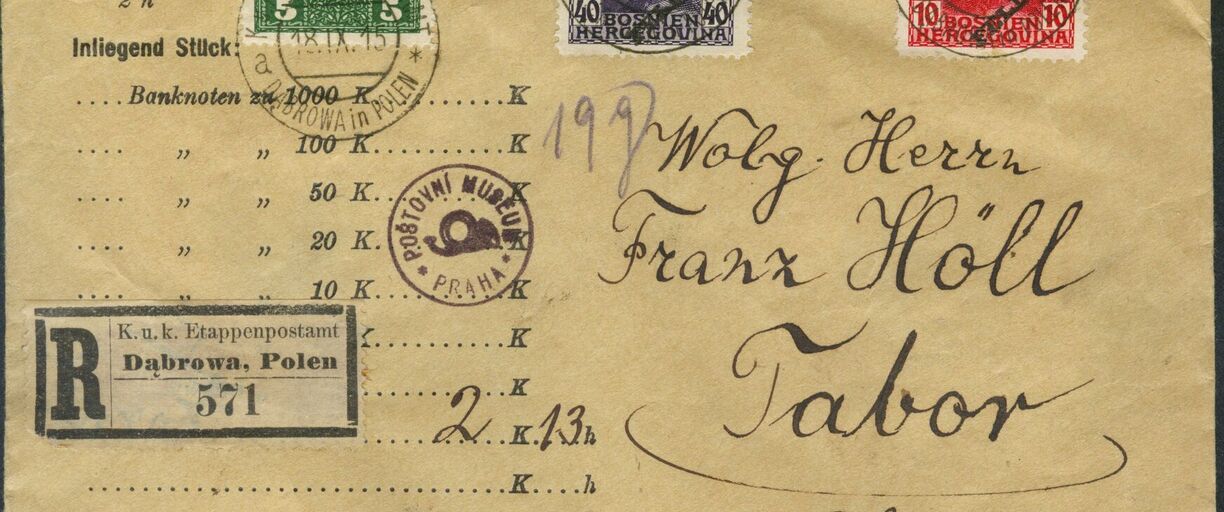 2 h
5 5
40 BOSNIEN 40
HERCEGOVINA
10 BOSNIEN 10
HERCEGOVINA
Inliegend Stück:
18.IX.15
a DĄBROWA in POLEN *
....Banknoten zu 1000 K..........K
.... „ „ 100 K..........K
.... „ „ 50 K..........K
.... „ „ 20 K..........K
.... „ „ 10 K..........K
19g
Wolg. Herrn
Franz Höll
Tabor
POŠTOVNÍ MUSEUM
* PRAHA *
R
K. u. k. Etappenpostamt
Dąbrowa, Polen
571
K
K
2 K 13 h
K....h